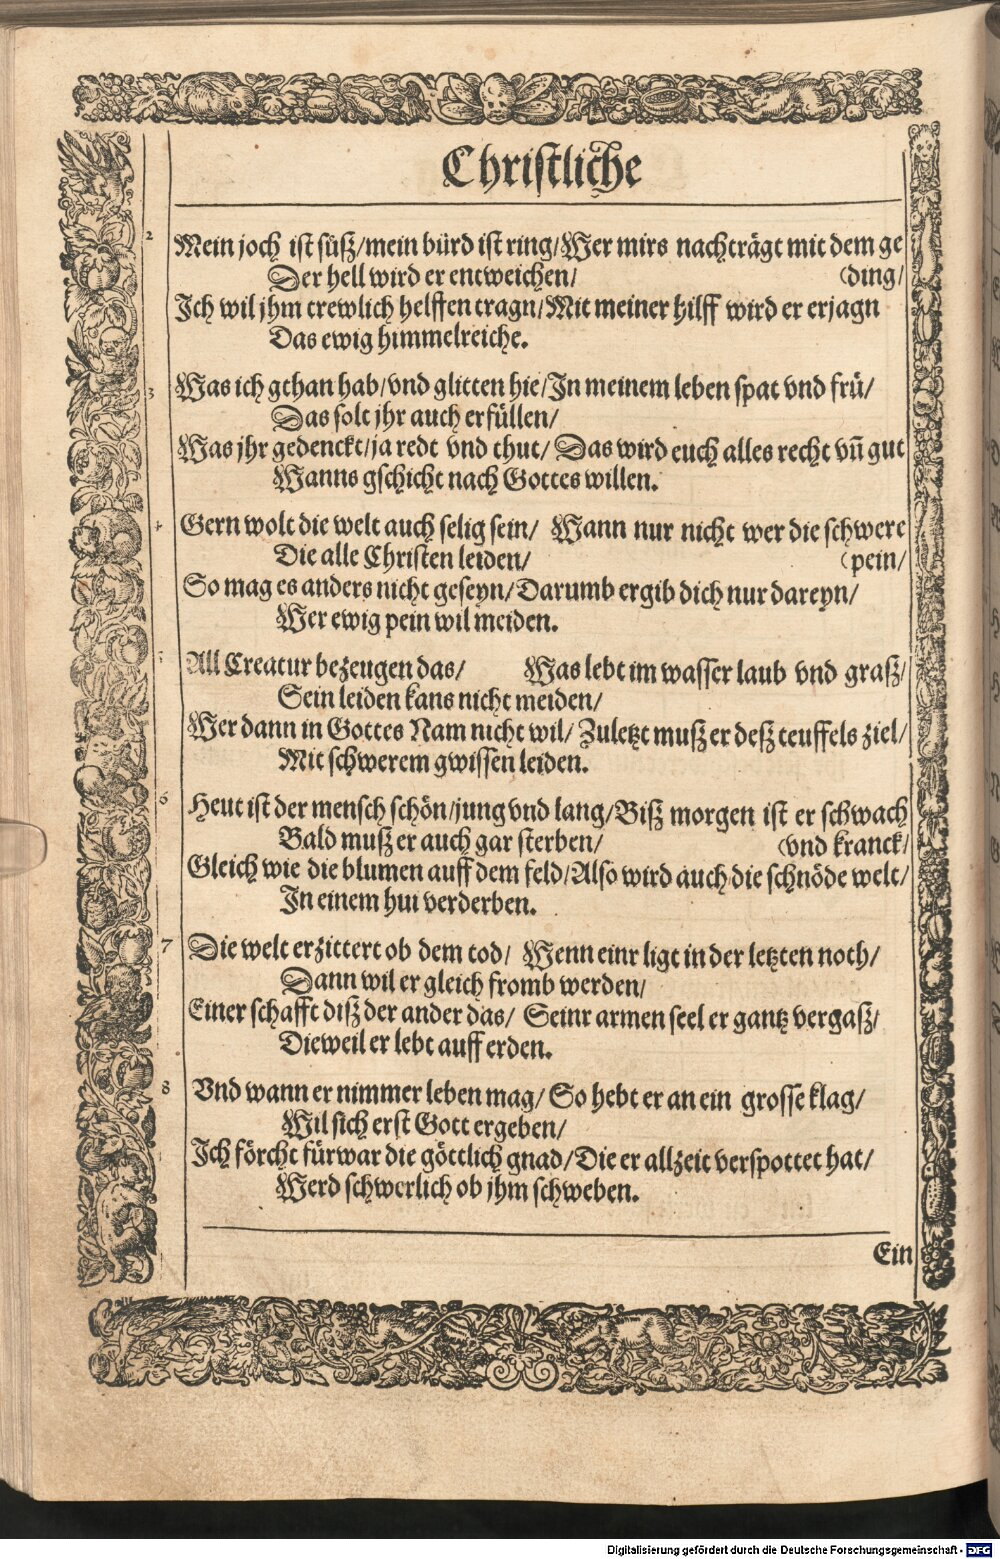 Christliche
2 Mein joch ist süß/mein bürd ist ring/Wer mirs nachträgt mit dem ge
Der hell wird er entweichen/ (ding/
Ich wil jhm trewlich helffen tragn/Mit meiner hilff wird er erjagn
Das ewig himmelreiche.
3 Was ich gthan hab/vnd glitten hie/In meinem leben spat vnd frü/
Das solt jhr auch erfüllen/
Was jhr gedenckt/ja redt vnd thut/ Das wird euch alles recht vñ gut
Wanns gschicht nach Gottes willen.
4 Gern wolt die welt auch selig sein/ Wann nur nicht wer die schwere
Die alle Christen leiden/ (pein/
So mag es anders nicht geseyn/Darumb ergib dich nur dareyn/
Wer ewig pein wil meiden.
5 All Creatur bezeugen das/ Was lebt im wasser laub vnd graß/
Sein leiden kans nicht meiden/
Wer dann in Gottes Nam nicht wil/ Zuletzt muß er deß teuffels ziel/
Mit schwerem gwissen leiden.
6 Heut ist der mensch schön/jung vnd lang/Biß morgen ist er schwach
Bald muß er auch gar sterben/ (vnd kranck/
Gleich wie die blumen auff dem feld/Also wird auch die schnöde welt/
In einem hui verderben.
7 Die welt erzittert ob dem tod/ Wenn einr ligt in der letzten noth/
Dann wil er gleich fromb werden/
Einer schafft diß der ander das/ Seinr armen seel er gantz vergaß/
Dieweil er lebt auff erden.
8 Vnd wann er nimmer leben mag/ So hebt er an ein grosse klag/
Wil sich erst Gott ergeben/
Ich förcht fürwar die göttlich gnad/Die er allzeit verspottet hat/
Werd schwerlich ob jhm schweben.
Ein
Digitalisierung gefördert durch die Deutsche Forschungsgemeinschaft - DFG